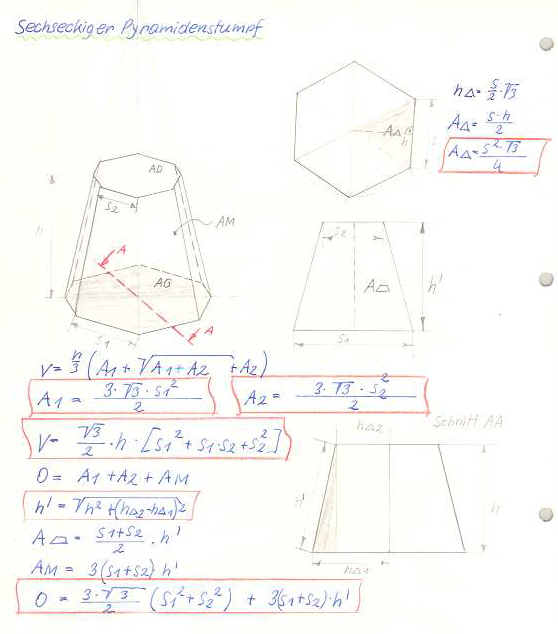 Sechseckiger Pyramidenstumpf
h△ = s/2 · √3
A△ = s·h/2
A△ = s²·√3/4
A△
h
AD
s2
AM
h
A
AG
A
s1
s2
A⏢
h'
s1
V = h/3 (A1 + √A1+A2 + A2)
A1 = 3·√3·s1²/2
A2 = 3·√3·s2²/2
V = √3/2 · h · [s1² + s1·s2 + s2²]
O = A1 + A2 + AM
h' = √h² + (h△2 - h△1)2
A⏢ = s1+s2/2 · h'
AM = 3(s1+s2) h'
O = 3·√3/2 (s1² + s2²) + 3(s1+s2)·h'
h△2
Schnitt AA
h'
h
h△1